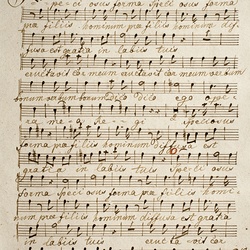 Speci osus forma Speci osus forma
præ filiis hominum præ filiis hominum dif
fusa est gratia in labiis tuis
eructavit cor meum eructavit cor meum verbum
bonum verbum bonum Dico Dico ego opera
mea regi Speciosus
forma præ filiis hominum diffusa est
gratia in labiis tuis Speci osus
forma Speci osus forma præ filiis homi
num præ filiis hominum diffusa est gratia
in labiis tuis eructavit cor